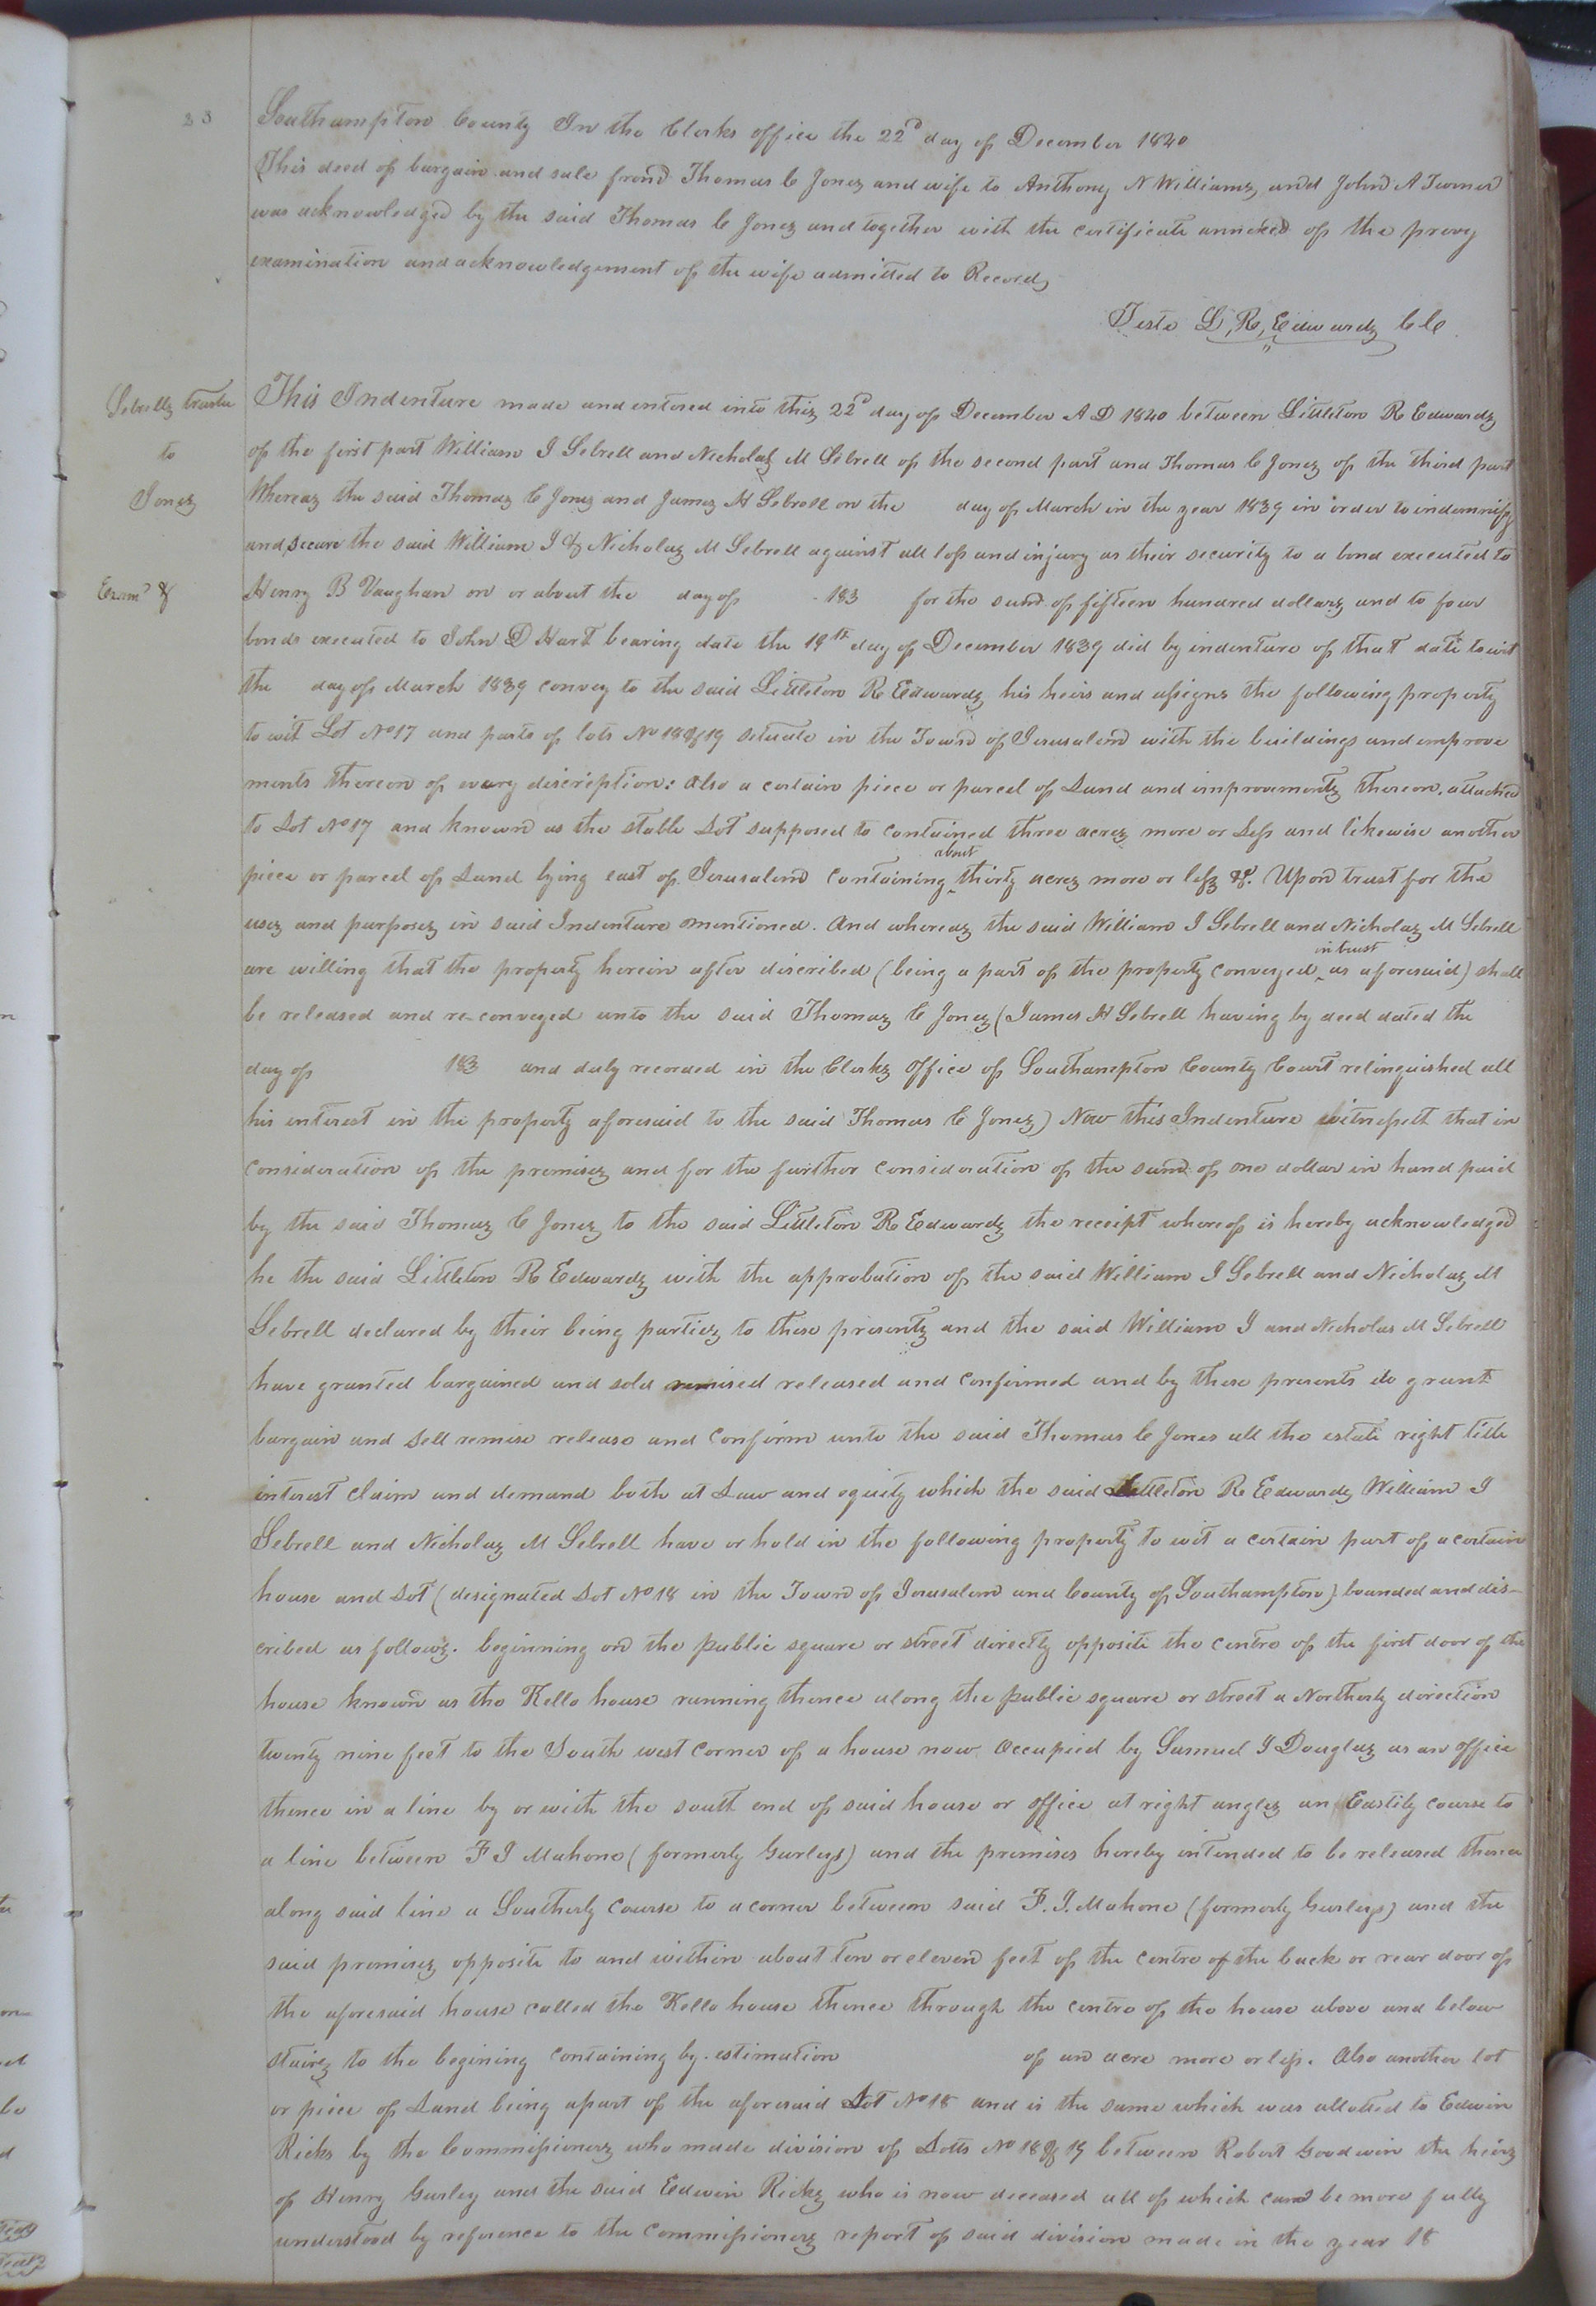 23
Southampton County In the Clerks office the 22d day of December 1840
This deed of bargain and sale from Thomas C Jones and wife to Anthony N Williams and John A Turner
was acknowledged by the said Thomas C Jones and together with the certificate annexed of the privy
examination and acknowledgement of the wife admitted to Record
Teste L, R, Edwards CC
Sebrells trustee
to
Jones
Examd &
This Indenture made and entered into this 22d day of December A D 1840 between Littleton R Edwards
of the first part William I Sebrell and Nicholas M Sebrell of the second part and Thomas C Jones of the third part
Whereas the said Thomas C Jones and James H Sebrell on the day of March in the year 1839 in order to indemnify
and secure the said William I & Nicholas M Sebrell against all loss and injury as their security to a bond executed to
Henry B Vaughan on or about the day of 183 for the sum of fifteen hundred dollars and to four
bonds executed to John D Hart bearing date the 19th day of December 1839 did by indenture of that date to wit
the day of March 1839 convey to the said Littleton R Edwards his heirs and assigns the following property
to wit Lot No 17 and parts of lots No 18 & 19 situate in the Town of Jerusalem with the buildings and improve
ments thereon of every discription: also a certain piece or parcel of Land and improvements thereon, attached
to Lot No 17 and known as the stable Lot supposed to contained three acres more or Less and likewise another
piece or parcel of Land lying east of Jerusalem containing about thirty acres more or less &. Upon trust for the
uses and purposes in said Indenture mentioned. And whereas the said William I Sebrell and Nicholas M Sebrell
are willing that the property herein after discribed (being a part of the property conveyed in trust as aforesaid) shall
be released and re-conveyed unto the said Thomas C Jones (James H Sebrell having by deed dated the
day of 183 and duly recorded in the Clerks office of Southampton County Court relinquished all
his interest in the property aforesaid to the said Thomas C Jones) Now this Indenture witnesseth that in
consideration of the premises and for the further consideration of the sum of one dollar in hand paid
by the said Thomas C Jones to the said Littleton R Edwards the receipt whereof is hereby acknowledged
he the said Littleton R Edwards with the approbation of the said William I Sebrell and Nicholas M
Sebrell declared by their being parties to these presents and the said William I and Nicholas M Sebrell
have granted bargained and sold remised released and confirmed and by these presents do grant
bargain and sell remise release and confirm unto the said Thomas C Jones all the estate right title
interest claim and demand both at Law and equity which the said Littleton R Edwards William I
Sebrell and Nicholas M Sebrell have or hold in the following property to wit a certain part of a certain
house and Lot (designated Lot No 18 in the Town of Jerusalem and County of Southampton) bounded and dis-
cribed as follows. beginning on the public square or street directly opposite the centre of the first door of the
house known as the Kello house running thence along the public square or street a Northerly direction
twenty nine feet to the South west corner of a house now occupied by Samuel I Douglas as an office
thence in a line by or with the south end of said house or office at right angles an Eastily course to
a line between F I Mahone (formerly Gurleys) and the premises hereby intended to be released thence
along said line a Southerly course to a corner between said F. I. Mahone (formerly Gurleys) and the
said premises opposite to and within about ten or eleven feet of the centre of the back or rear door of
the aforesaid house called the Kello house thence through the centre of the house above and below
stairs to the begining containing by estimation of an acre more or less. Also another lot
or piece of Land being apart of the aforesaid Lot No 18 and is the same which was allotted to Edwin
Ricks by the Commissioners who made division of Lotts No 18 & 19 between Robert Goodwin the heirs
of Henry Gurley and the said Edwin Ricks who is now deceased all of which can be more fully
understood by reference to the commissioners report of said division made in the year 18